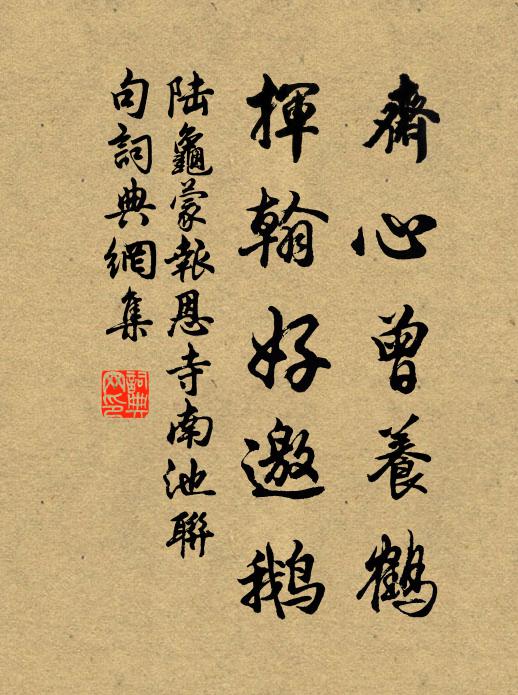 齋心曾養鶴
揮翰好邀鵝
陸龜蒙報恩寺南池聯
句詞典網集
詞典
網印